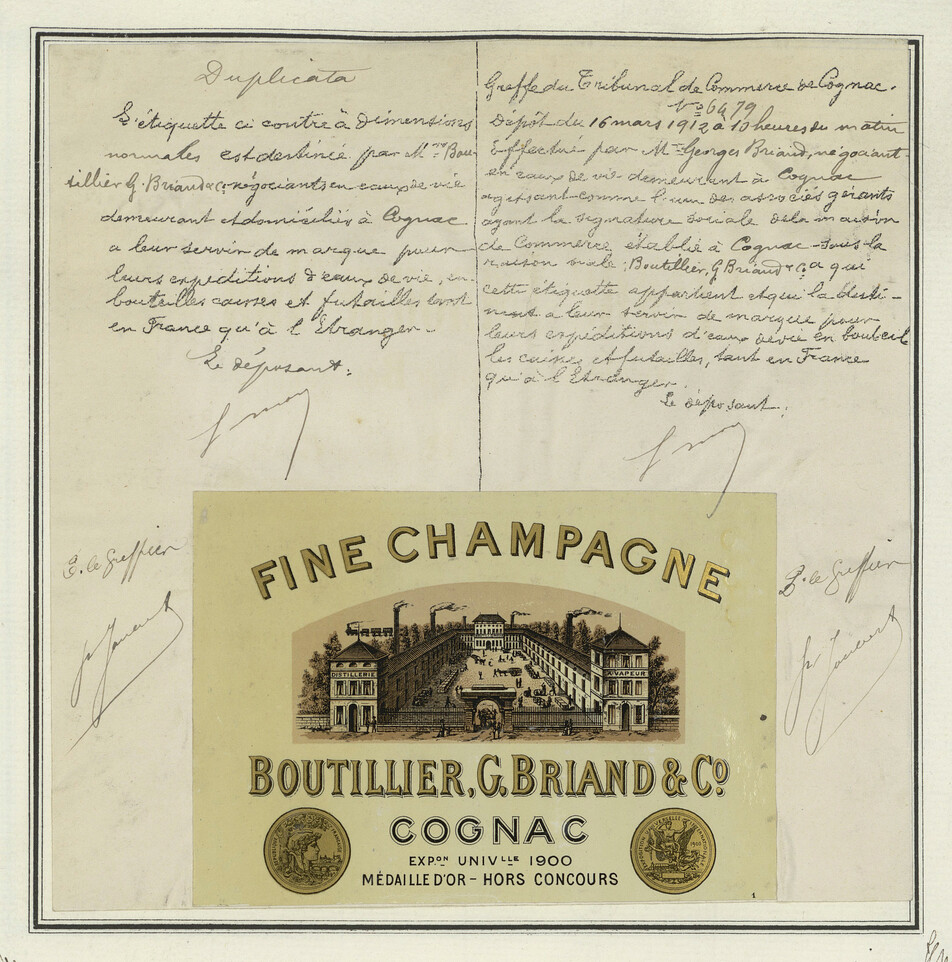 Duplicata
L'étiquette ci contre à dimensions
normales est destinée par Mrs Bou-
tillier G. Briand & Co négociants en eaux de vie
demeurant et domiciliés à Cognac
a leur servir de marque pour
leurs expeditions d'eaux de vie, en
bouteilles caisses et futailles tant
en France qu'à l'Etranger.
Le déposant:
Greffe du Tribunal de Commerce de Cognac.
No 6479
Dépôt du 16 mars 1912 à 10 heures du matin
Effectué par Mr Georges Briand, négociant
en eaux de vie demeurant à Cognac
agissant comme l'un des associés gérants
ayant la signature sociale de la maison
de Commerce établie à Cognac sous la
raison sociale: Boutillier, G. Briand & Co a qui
cette etiquette appartient et qui la desti-
nent a leur servir de marque pour
leurs expéditions d'eaux de vie en bouteil
les caisses et futailles, tant en France
qu'à l'Etranger.
Le déposant:
le Greffier
le Greffier
FINE CHAMPAGNE
DISTILLERIE
A VAPEUR
BOUTILLIER, G. BRIAND & Co
COGNAC
EXPon UNIVlle 1900
MÉDAILLE D'OR - HORS CONCOURS
1